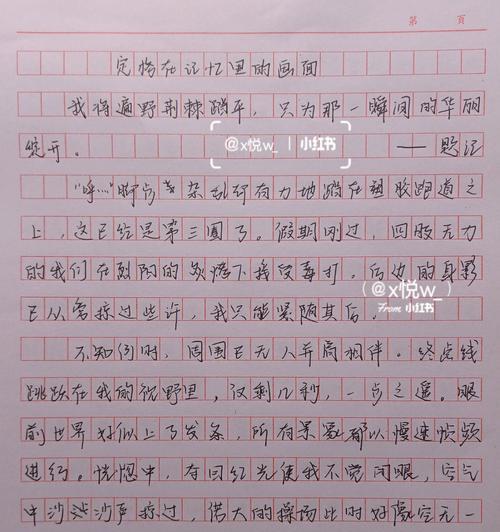 第 頁
定格在记忆里的画面
我将遍野荆棘踏平，只为那一瞬间的华丽
绽开。
@x悦w_ | 小红书
——题记
"呼……"脚步杂乱却有力地踏在塑胶跑道之
上，这已经是第三圈了。假期刚过，四肢无力
的我们在烈阳的炙烤下接受毒打。后边的身影
@x悦w_
已从旁掠过些许，我只能紧随其后。
From 小红书
不知何时，周围已无人并肩相伴。终点线
跳跃在我的视野里，仅剩几秒，一步之遥。眼
前世界好似上了发条，所有景象都以慢速帧频
进行。恍惚中，夺目红光使我不觉闭眼，空气
中沙沙声掠过，偌大的操场此时好像空无一